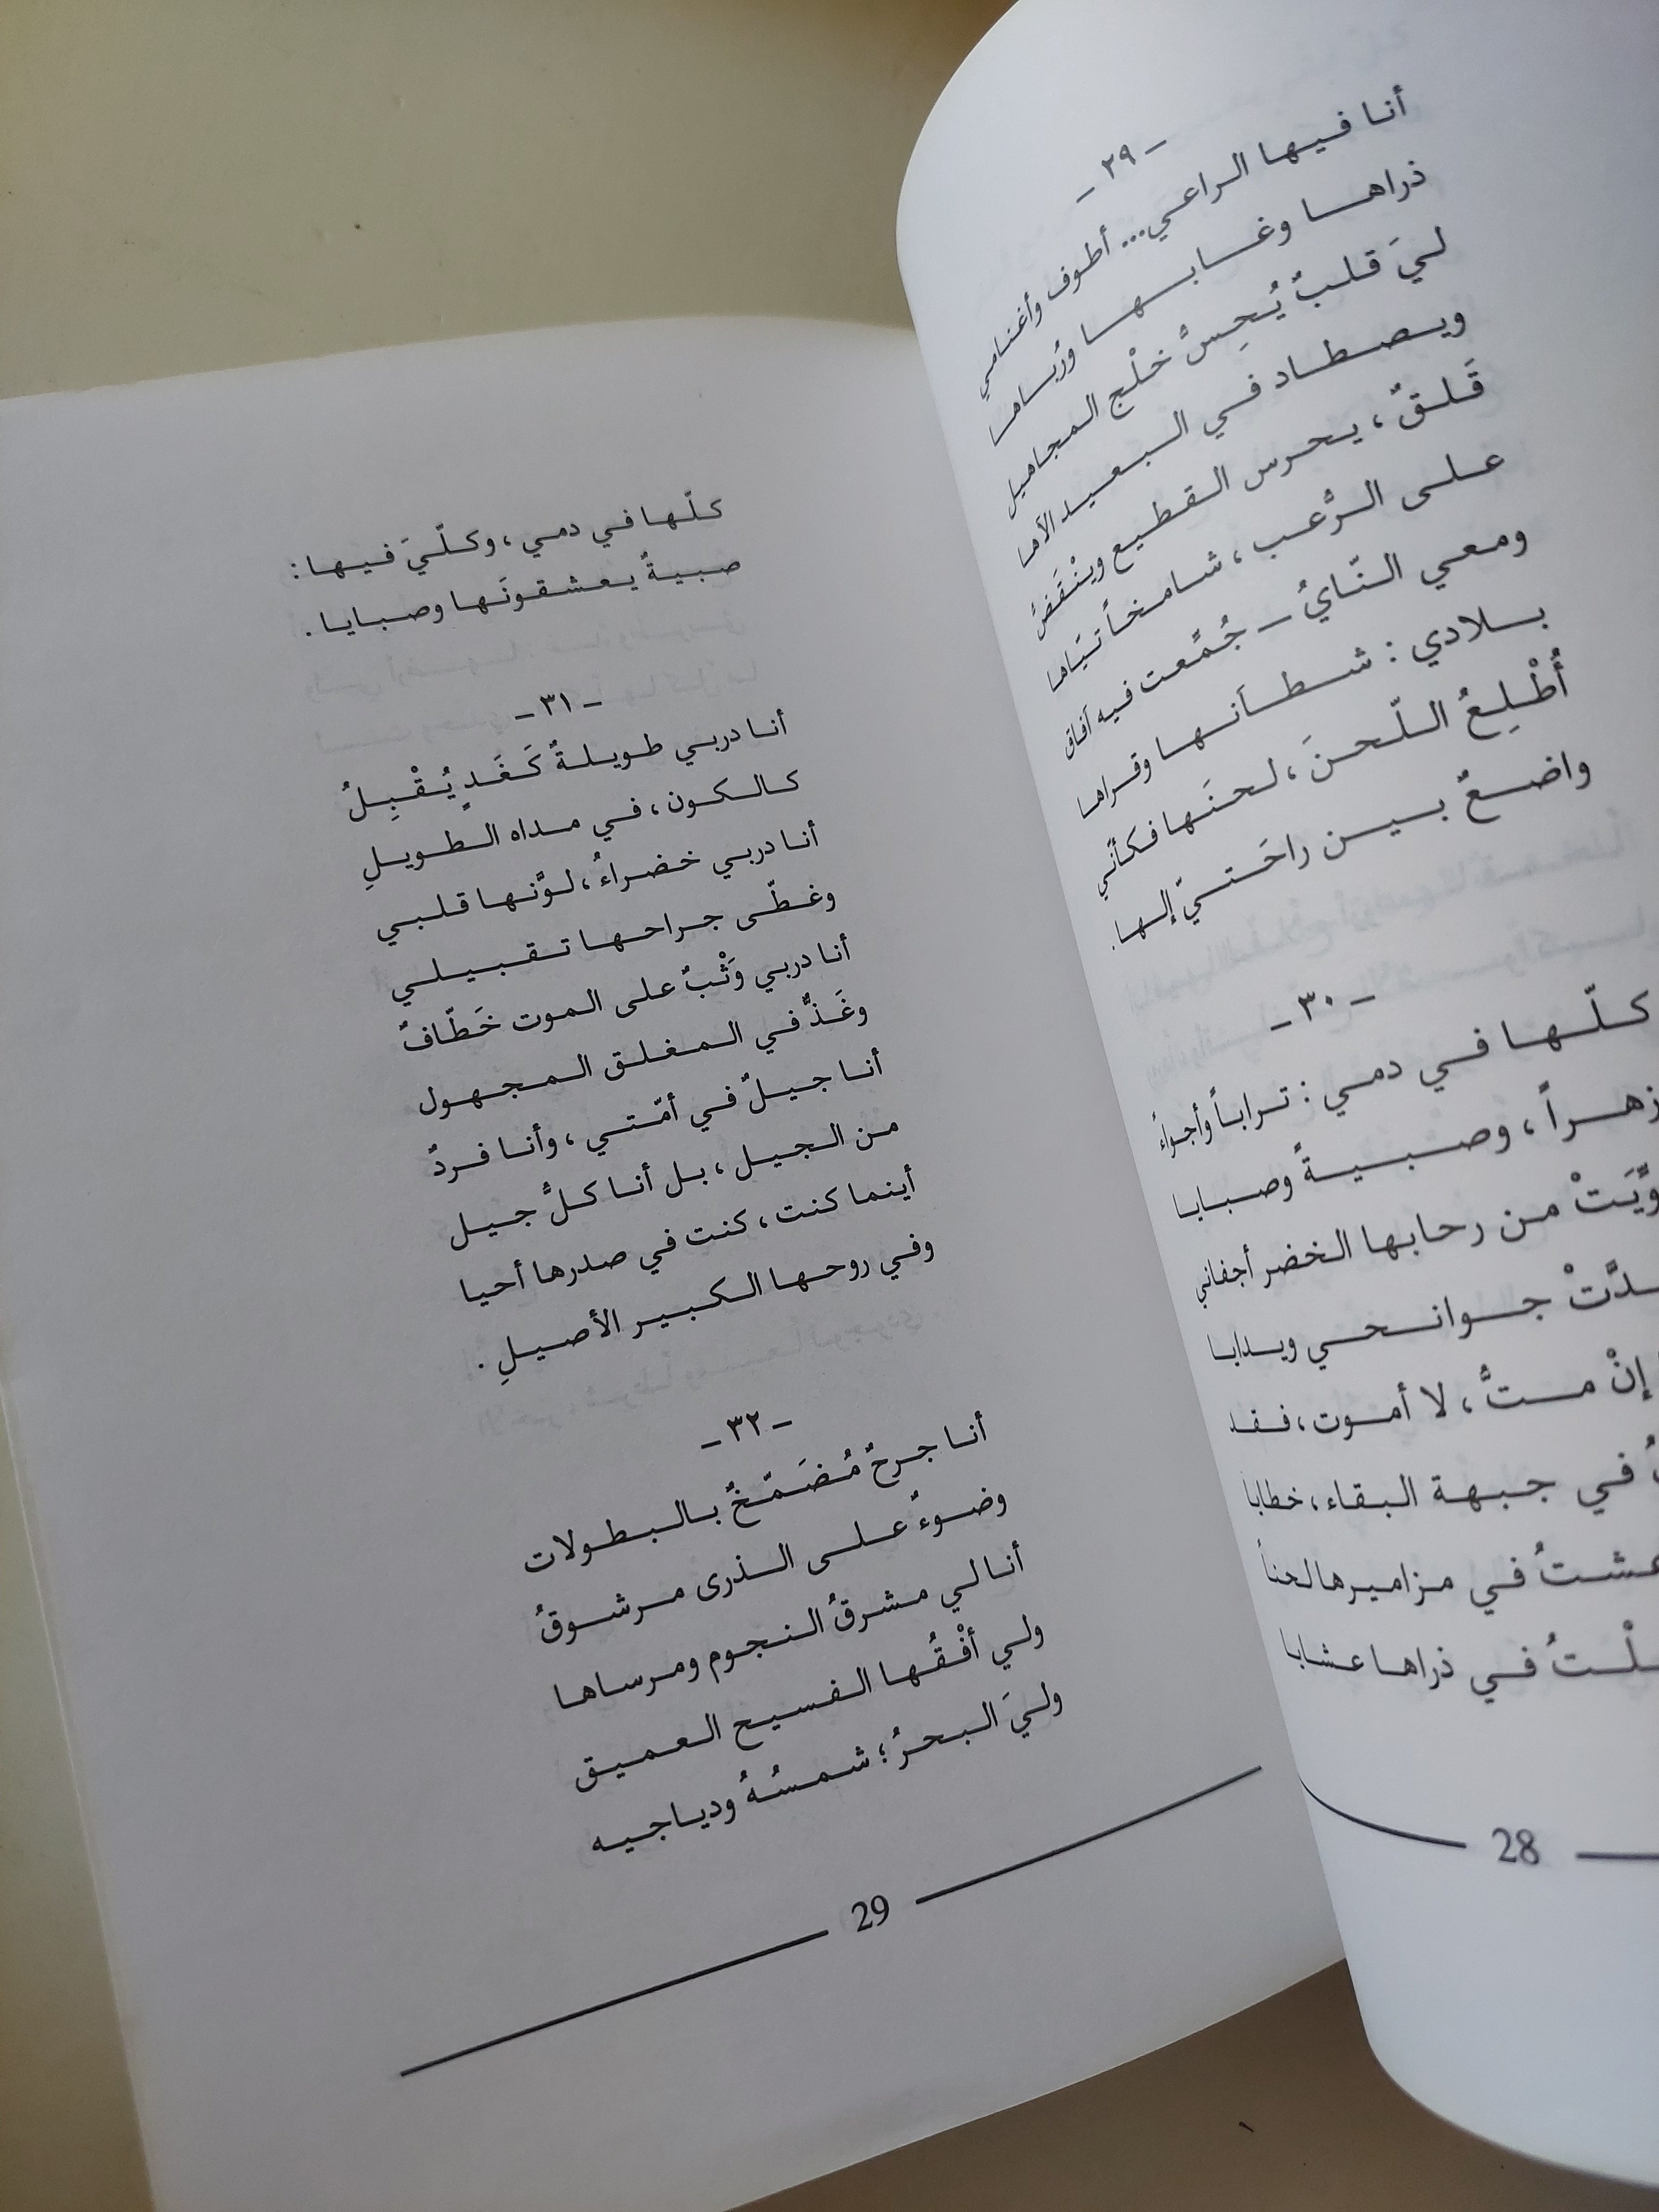 - ٢٩ -
أنا فيها الراعي... أطوف وأغنامي
ذراها وغابها ورُباها
ليَ قلبٌ يُحِسُّ خلْج المجاهيل
ويصطاد في البعيد الآها
قَلقٌ، يحرس القطيع وينْقَضُّ
على الرُّعب، شامخاً تيّاها
ومعي النّايُ - جُمِّعت فيه آفاق
بلادي: شطآنها وقراها
أُطْلِعُ اللّحنَ، لحنَها فكأنّي
واضعٌ بين راحَتيّ إلها.
- ٣٠ -
كلّها في دمي: تراباً وأجواءً
زهراً، وصبيةً وصبايا
من رحابها الخضر أجفاني
جوانحي ويدايا
إنْ متُّ، لا أموت، فقد
في جبهة البقاء، خطابا
عشتُ في مزاميرها لحناً
في ذراها عشابا
28
كلّها في دمي، وكلّيَ فيها:
صبيةٌ يعشقونَها وصبايا.
- ٣١ -
أنا دربي طويلةٌ كَغَدٍ يُقْبِلُ
كالكون، في مداه الطويلِ
أنا دربي خضراءُ، لوَّنها قلبي
وغطّى جراحها تقبيلي
أنا دربي وَثْبٌ على الموت خَطّافٌ
وغَذٌّ في المغلق المجهول
أنا جيلٌ في أمّتي، وأنا فردٌ
من الجيل، بل أنا كلُّ جيل
أينما كنت، كنت في صدرها أحيا
وفي روحها الكبير الأصيلِ.
- ٣٢ -
أنا جرحٌ مُضَمّخٌ بالبطولات
وضوءٌ على الذرى مرشوقُ
أنا لي مشرقُ النجوم ومرساها
ولي أفْقُها الفسيح العميق
وليَ البحرُ؛ شمسُهُ ودياجيه
29